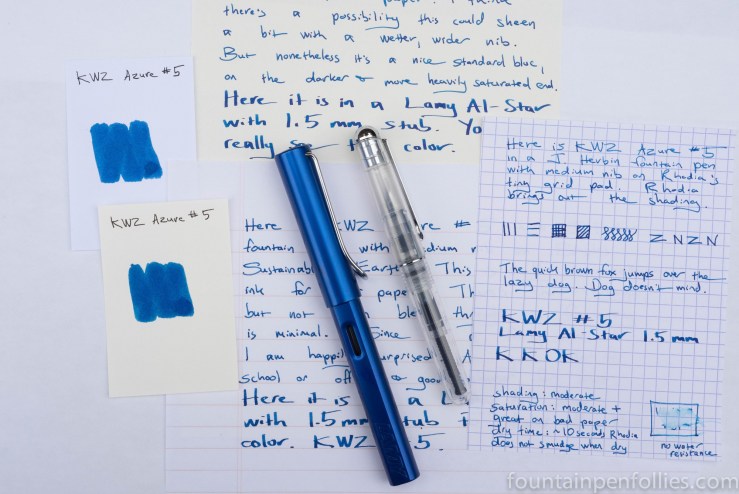 there's a possibility this could sheen
a bit with a wetter, wider nib.
But nonetheless it's a nice standard blue,
on the darker & more heavily saturated end.
Here it is in a Lamy Al-Star
with 1.5 mm stub. Yo
really the color.
KWZ Azure #5
KWZ Azure #5
Here KWZ #
fountain with medium
Sustainabl Earth This
ink for pape Th
but not ble
is minimal. Since
I am happil surprised. A
school or off good
Here it is a L
with 1.5mm stub
color. KWZ 5.
Here is KWZ Azure #5
in a J Herbin fountain pen
with medium nib on Rhodia's
tiny grid pad. Rhodia
brings out the shading.
Z N Z N
The quick brown fox jumps over the
lazy dog. Dog doesn't mind.
KWZ #5
Lamy Al-Star 1.5 mm
K K OK
shading: moderate
saturation: moderate +
great on bad paper
dry time: ~10 seconds Rhodia
does not smudge when dry
no water
resistance
fountainpenfollies.com